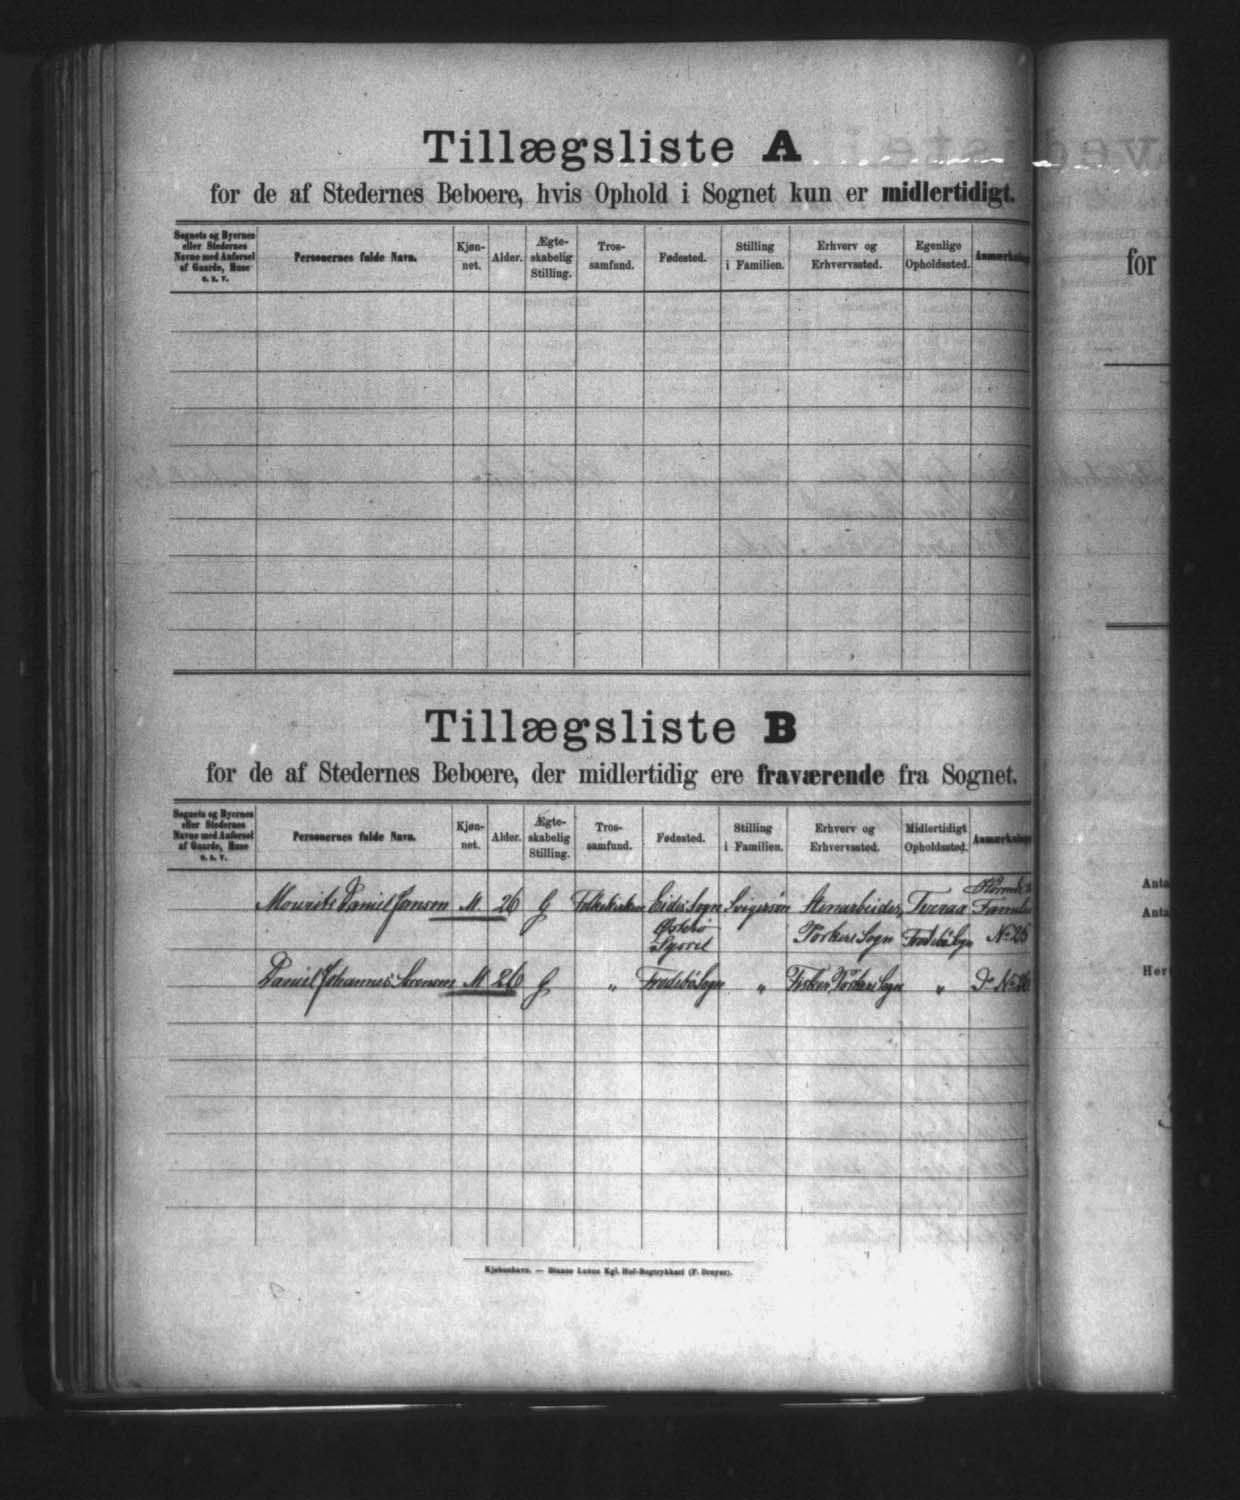 Tillægsliste A
for de af Stedernes Beboere, hvis Ophold i Sognet kun er midlertidigt.
Sognets og Byernes eller Stedernes Navne med Anførsel af Gaarde, Huse o. s. v.
Personernes fulde Navn.
Kjøn-net.
Alder.
Ægte-skabelig Stilling.
Tros-samfund.
Fødested.
Stilling i Familien.
Erhverv og Erhvervssted.
Egenlige Opholdssted.
for
Tillægsliste B
for de af Stedernes Beboere, der midlertidig ere fraværende fra Sognet.
Sognets og Byernes eller Stedernes Navne med Anførsel af Gaarde, Huse o. s. v.
Personernes fulde Navn.
Kjøn-net.
Alder.
Ægte-skabelig Stilling.
Tros-samfund.
Fødested.
Stilling i Familien.
Erhverv og Erhvervssted.
Midlertidigt Opholdssted.
Mourits Daniel Jensen M 26 G Folkekirken Eides Sogn Svigersøn Stenarbeider, Tveraa Familie
Østerø Porkeri Sogn Frodebø Sogn No 25
Syssel
Daniel Johannes Sørensen M 26 G " Frodebø Sogn " Fisker, Porkeri Sogn "
Kjøbenhavn. — Bianco Lunos Kgl. Hof-Bogtrykkeri (F. Dreyer).
Anta
Anta
Her